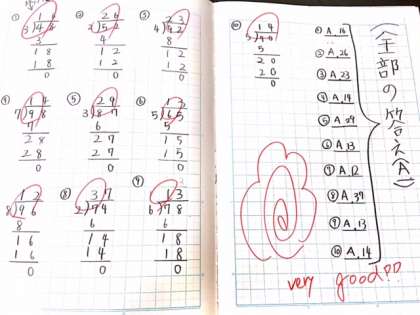 ①
16
3)48
3
18
18
0
②
26
2)52
4
12
12
0
③
23
4)92
8
12
12
0
④
14
7)98
7
28
28
0
⑤
29
3)87
6
27
27
0
⑥
13
5)65
5
15
15
0
12
8)96
8
16
16
0
⑧
37
2)74
6
14
14
0
⑨
13
6)78
6
18
18
0
⑩
14
5)70
5
20
20
0
① A.16
② A.26
③ A.23
④ A.14
⑤ A.29
⑥ A.13
⑦ A.12
⑧ A.37
⑨ A.13
⑩ A.14
(全部の答え(A))
very good!!